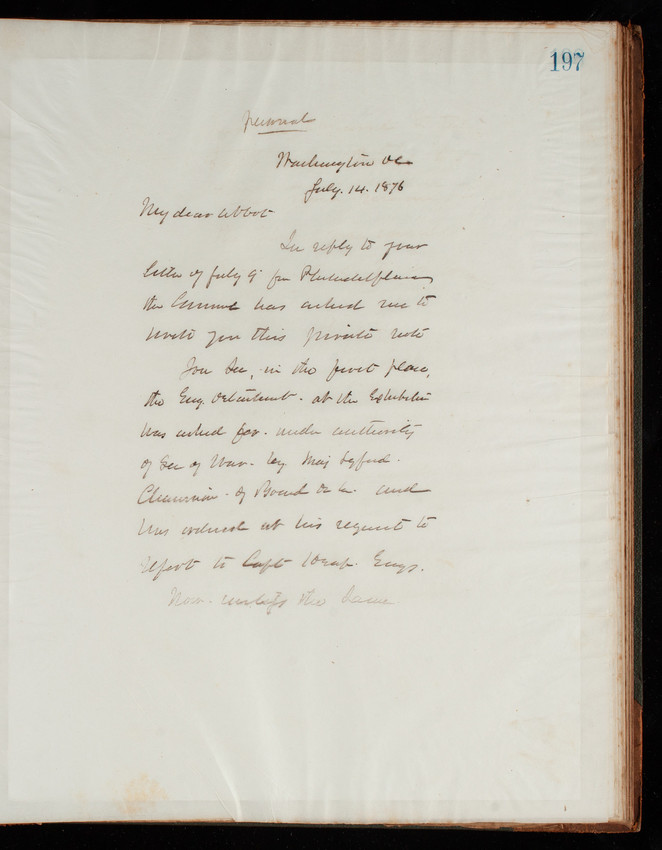 197
Personal
Washington DC
July. 14. 1876
My dear Abbot
In reply to your
letter of July 9" from Philadelphia,
the General has asked me to
write you this private note
You see, in the first place,
the Eng. Detachment. at the Exhibition
was asked for. under authority
of Sec of War. by. Maj
Chairman. of Board and
was ordered at his request to
report to Capt Engs.
Now. the same